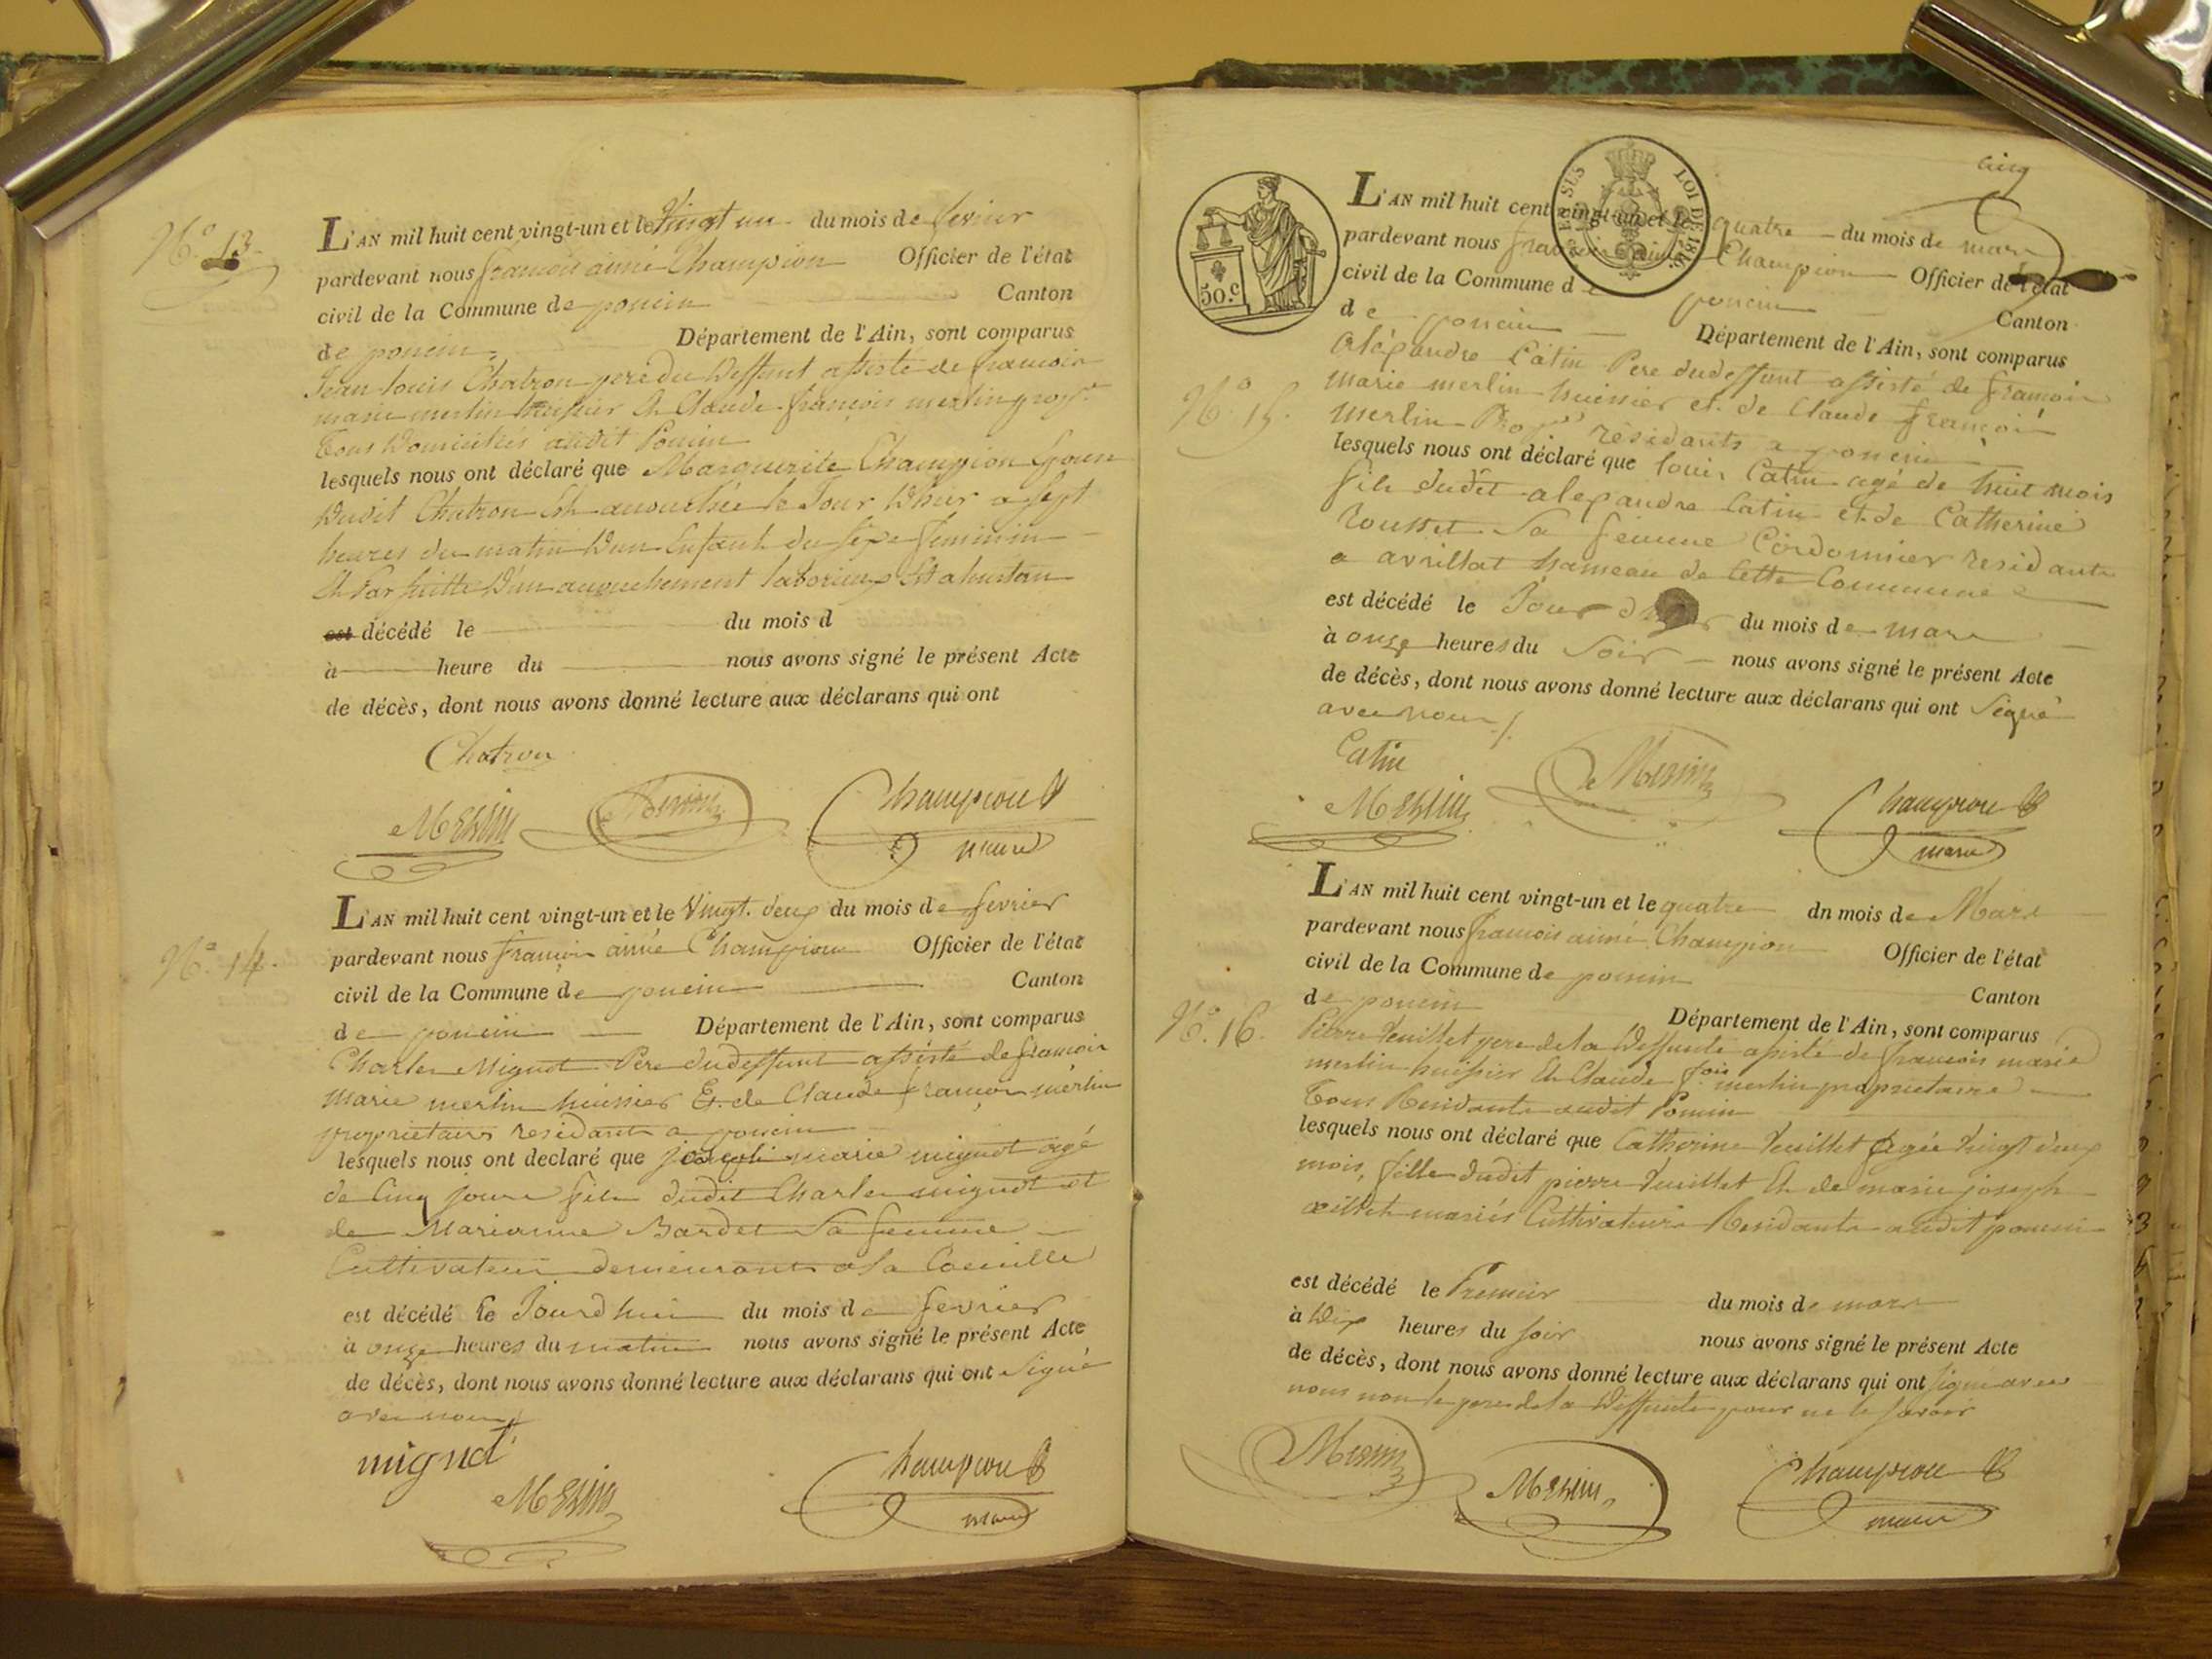 N.o 13.
L'AN mil huit cent vingt-un et le Vingt un du mois de fevrier
pardevant nous francois aimé Champion Officier de l'état
civil de la Commune de poncin Canton
de poncin Département de l'Ain, sont comparus
Jean louis Chatron pere du deffunt assisté de francois
marie merlin huissier Et Claude francois merlin prop.re
Tous Domiciliés audit Poncin
lesquels nous ont déclaré que Marguerite Champion
Dudit Chatron Est accouchée le Jour D'hier a sept
heures du matin D'un Enfant du sexe feminin
Et Par suitte D'un accouchement laborieux
est décédé le du mois d
à heure du nous avons signé le présent Acte
de décès, dont nous avons donné lecture aux déclarans qui ont
Chatron
Merlin Merlin Champion
maire
N.o 14.
L'AN mil huit cent vingt-un et le Vingt. deux du mois de fevrier
pardevant nous francois aimé Champion Officier de l'état
civil de la Commune de poncin Canton
de poncin Département de l'Ain, sont comparus
Charles Mignot Pere dudeffunt assisté de francois
marie merlin huissier Et de Claude francois merlin
proprietaires residants a poncin
lesquels nous ont declaré que joseph marie mignot agé
de Cinq jours fils dudit Charles mignot et
de Marianne Bardet Sa femme
Cultivateurs demeurants a la
est décédé le Jourd'hui du mois de fevrier
à onze heures du matin nous avons signé le présent Acte
de décès, dont nous avons donné lecture aux déclarans qui ont Signé
avec nous
mignot
Merlin Champion
maire
cinq
50.c
LOI DE 1816.
L'AN mil huit cent vingt-un et le quatre du mois de mars
pardevant nous francois aimé Champion Officier de l'état
civil de la Commune de poncin Canton
de poncin Département de l'Ain, sont comparus
N.o 15.
Alexandre Catin Pere dudeffunt assisté de francois
marie merlin huissier et de Claude francois
merlin Prop.res résidants a poncin
lesquels nous ont déclaré que louis Catin agé de huit mois
fils dudit alexandre Catin et de Catherine
Rousset Sa femme Cordonnier residants
a avrillat hameau de Cette Commune
est décédé le Jour d'hier du mois de mars
à onze heures du Soir nous avons signé le présent Acte
de décès, dont nous avons donné lecture aux déclarans qui ont Signé
avec nous
Catin
Merlin Merlin Champion
maire
L'AN mil huit cent vingt-un et le quatre dn mois de Mars
pardevant nous francois aimé Champion Officier de l'état
civil de la Commune de poncin Canton
de poncin Département de l'Ain, sont comparus
N.o 16.
Pierre Vuillet pere de la Deffunte assisté de francois marie
merlin huissier Et Claude f.ois merlin proprietaire
Tous Residants audit Poncin
lesquels nous ont déclaré que Catherine Vuillet agée Vingt deux
mois, fille dudit pierre Vuillet Et de marie joseph
mariés Cultivateurs Residants audit poncin
est décédé le Premier du mois de mars
à Dix heures du soir nous avons signé le présent Acte
de décès, dont nous avons donné lecture aux déclarans qui ont signé avec
nous non le pere de la Deffunte pour ne le savoir
Merlin Merlin Champion
maire